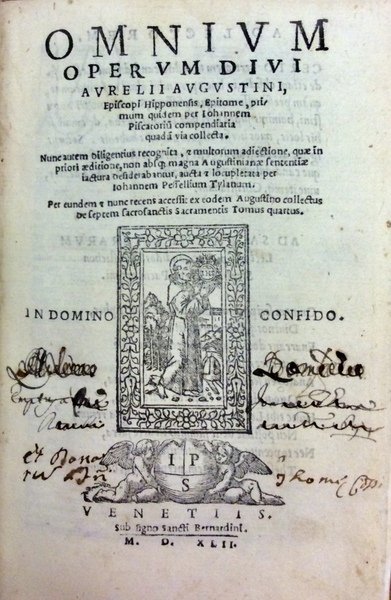 OMNIVM
OPERVM DIVI
AVRELII AVGVSTINI,
Episcopi Hipponensis, Epitome, pri
mum quidem per Iohannem
Piscatoriũ compendiaria
quadã via collecta.
Nunc autem diligentius recognita, & multorum adiectione, quæ in
priori æditione, non absq; magna Augustinianæ sententiæ
iactura desiderabantur, aucta & locupletata per
Iohannem Pesselium Tylanum.
Per eundem & nunc recens accessit ex eodem Augustino collectus
de septem sacrosanctis Sacramentis Tomus quartus.
IN DOMINO CONFIDO.
et Bona
I P
S
VENETIIS.
Sub signo Sancti Bernardini.
M. D. XLII.